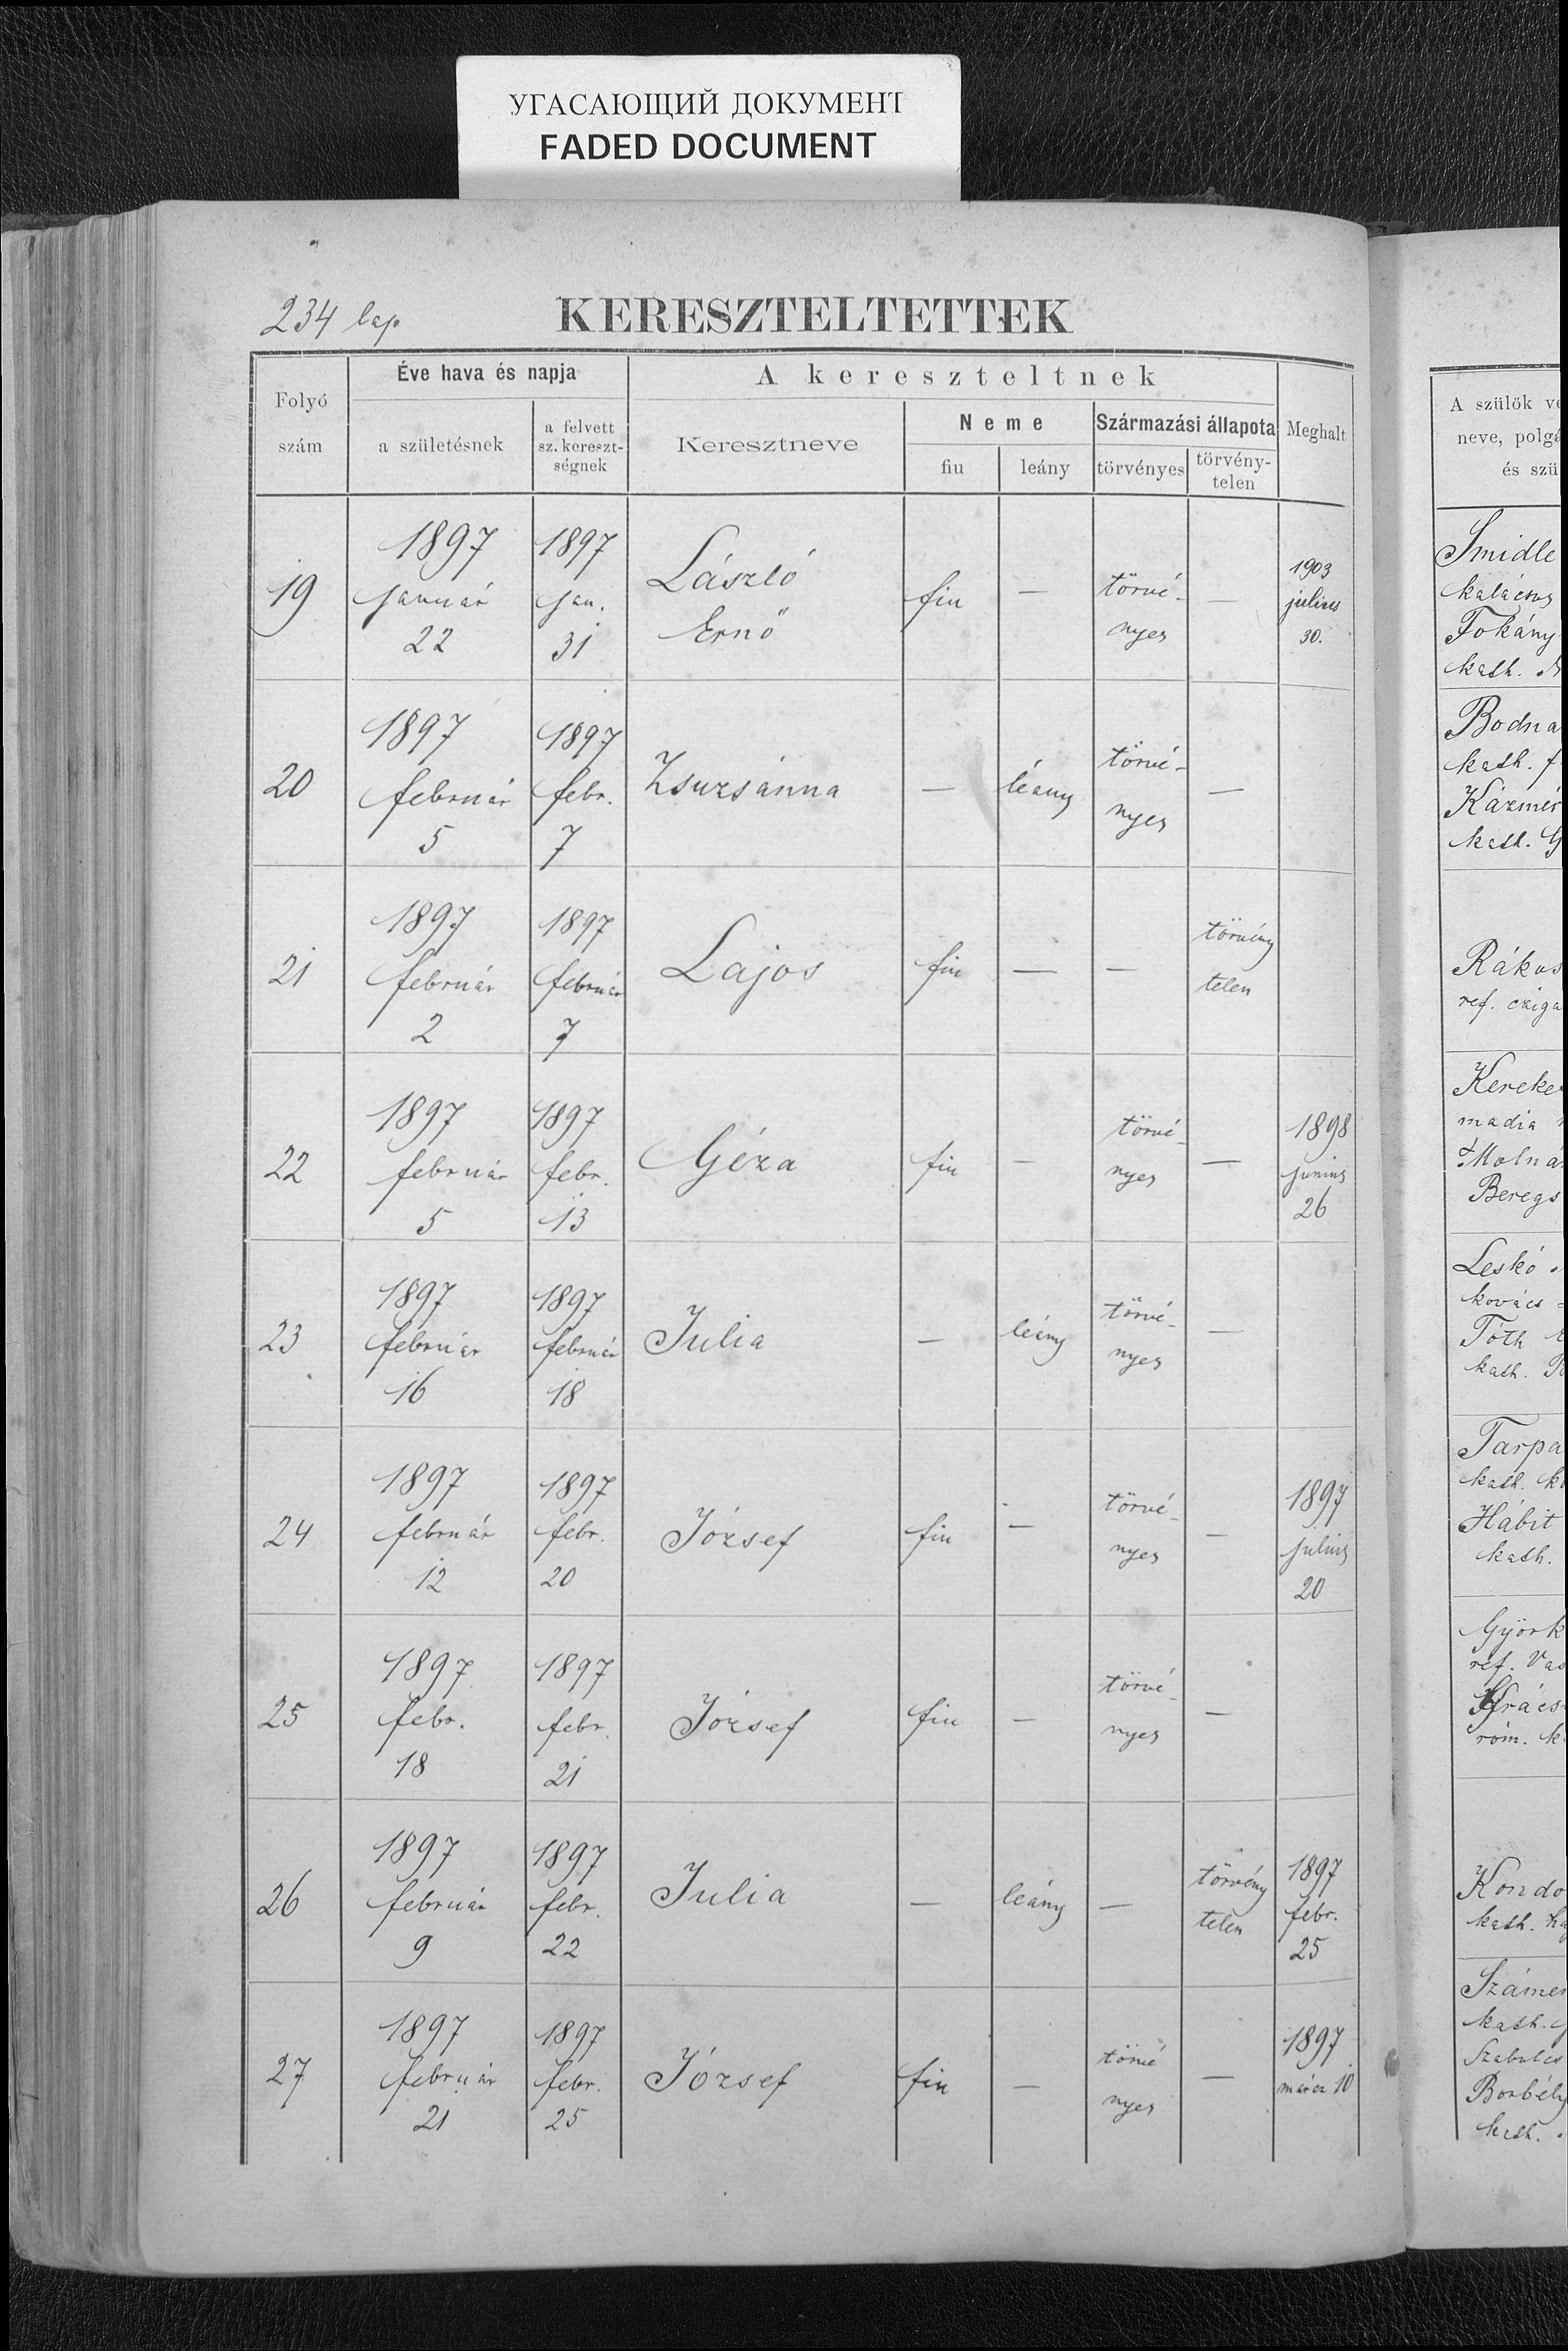 УГАСАЮЩИЙ ДОКУМЕНТ
FADED DOCUMENT
234 lap
KERESZTELTETTEK
Folyó szám
Éve hava és napja
a születésnek
a felvett sz. kereszt-ségnek
A kereszteltnek
Keresztneve
Neme
fiu
leány
Származási állapota
törvényes
törvény-telen
Meghalt
19
1897 január 22
1897 jan. 31
László Ernő
fiu
—
törvé-nyes
—
1903 julius 30.
20
1897 február 5
1897 febr. 7
Zsuzsánna
—
leány
törvé-nyes
—
21
1897 február 2
1897 február 7
Lajos
fiu
—
—
törvény telen
22
1897 február 5
1897 febr. 13
Géza
fiu
—
törvé-nyes
—
1898 junius 26
23
1897 február 16
1897 február 18
Julia
—
leány
törvé-nyes
—
24
1897 február 12
1897 febr. 20
József
fiu
—
törvé-nyes
—
1897 julius 20
25
1897 febr. 18
1897 febr. 21
József
fiu
—
törvé-nyes
—
26
1897 február 9
1897 febr. 22
Julia
—
leány
—
törvény telen
1897 febr. 25
27
1897 február 21
1897 febr. 25
József
fiu
—
törvé nyes
—
1897 márcz 10
A szülők ve
neve, polgá
és szü
Smidle
kalácsos
Fokány
kath.
Bodna
kath. f
Kázmér
kath. G
Rákos
ref. cziga
Kereke
madia
Molná
Beregs
Leskó
kovács
Tóth
kath.
Tarpa
kath. k
Hábit
kath.
Györk
ref. Vas
róm. k
Kondo
kath.
Számer
kath.
Szabolcs
Borbély
kath.